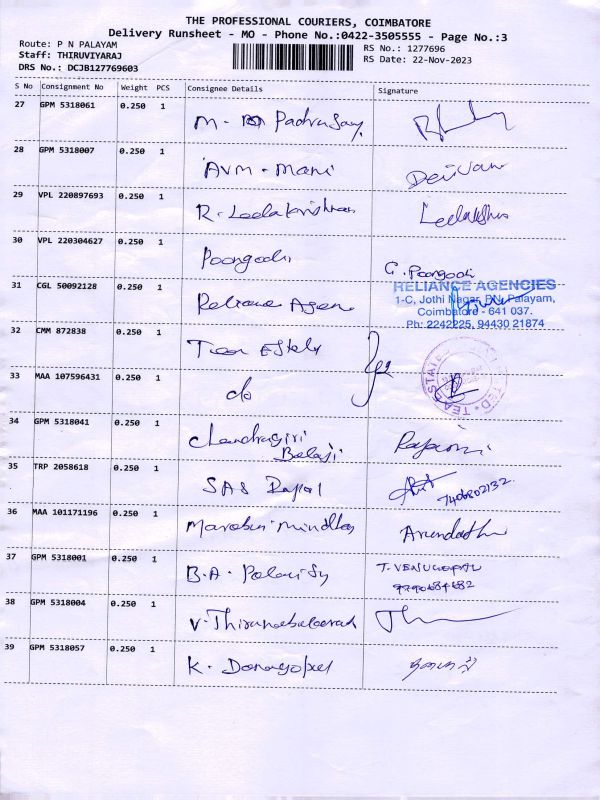 THE PROFESSIONAL COURIERS, COIMBATORE
Delivery Runsheet - MO - Phone No.:0422-3505555 - Page No.:3
Route: P N PALAYAM
RS No.: 1277696
Staff: THIRUVIYARAJ
RS Date: 22-Nov-2023
DRS No.: DCJB127769603
S No Consignment No Weight PCS Consignee Details Signature
27 GPM 5318061 0.250 1 M.
28 GPM 5318007 0.250 1 AVM - Mani
29 VPL 220897693 0.250 1 R. Leelakrishnan
30 VPL 220304627 0.250 1 Poongodi G. Poongodi
31 CGL 50092128 0.250 1 Reliance Agen
RELIANCE AGENCIES
1-C, Jothi Nagar, P.N. Palayam,
Coimbatore - 641 037.
Ph: 2242225, 94430 21874
32 CMM 872838 0.250 1
33 MAA 107596431 0.250 1 do
34 GPM 5318041 0.250 1 Chandragiri
Balaji
35 TRP 2058618 0.250 1 SAS
7406802132
36 MAA 101171196 0.250 1
37 GPM 5318001 0.250 1 B.A. T. VENUGOPAL
9790684682
38 GPM 5318004 0.250 1 V.
39 GPM 5318057 0.250 1 K.